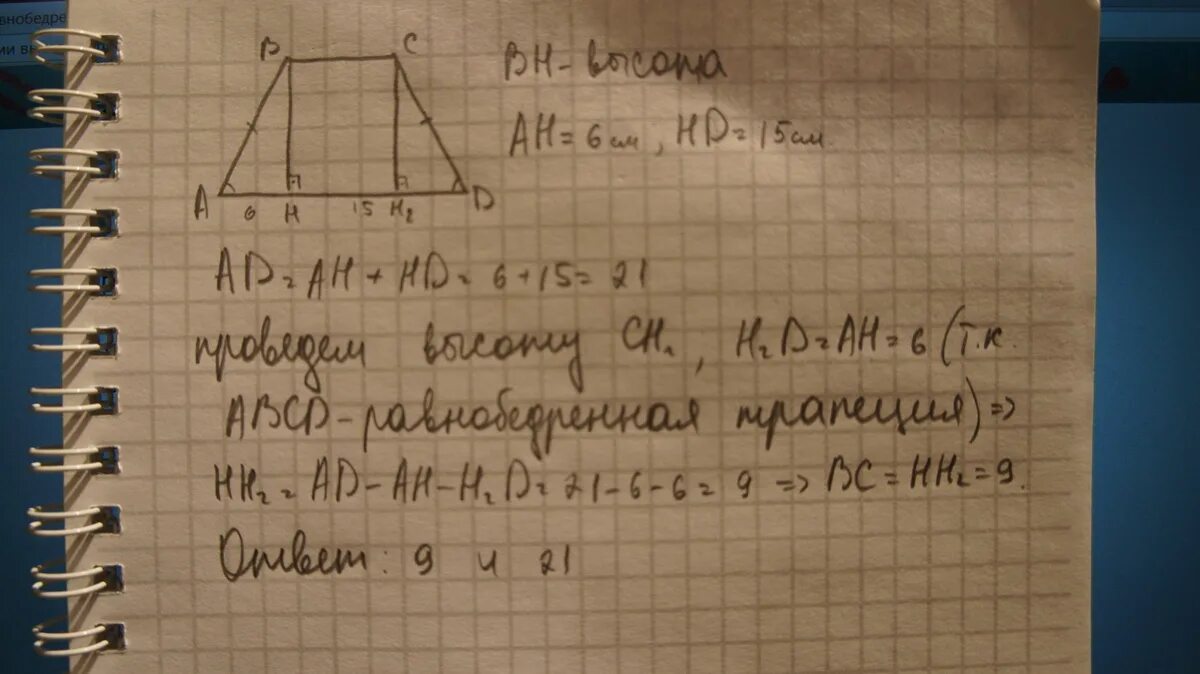 внобедре
ии вы
B C
A 6 H 15 H₂ D
BH - высота
AH = 6 см, HD = 15 см.
AD = AH + HD = 6 + 15 = 21
проведем высоту CH₂, H₂D = AH = 6 (т.к.
ABCD - равнобедренная трапеция) =>
HH₂ = AD - AH - H₂D = 21 - 6 - 6 = 9 => BC = HH₂ = 9.
Ответ: 9 и 21